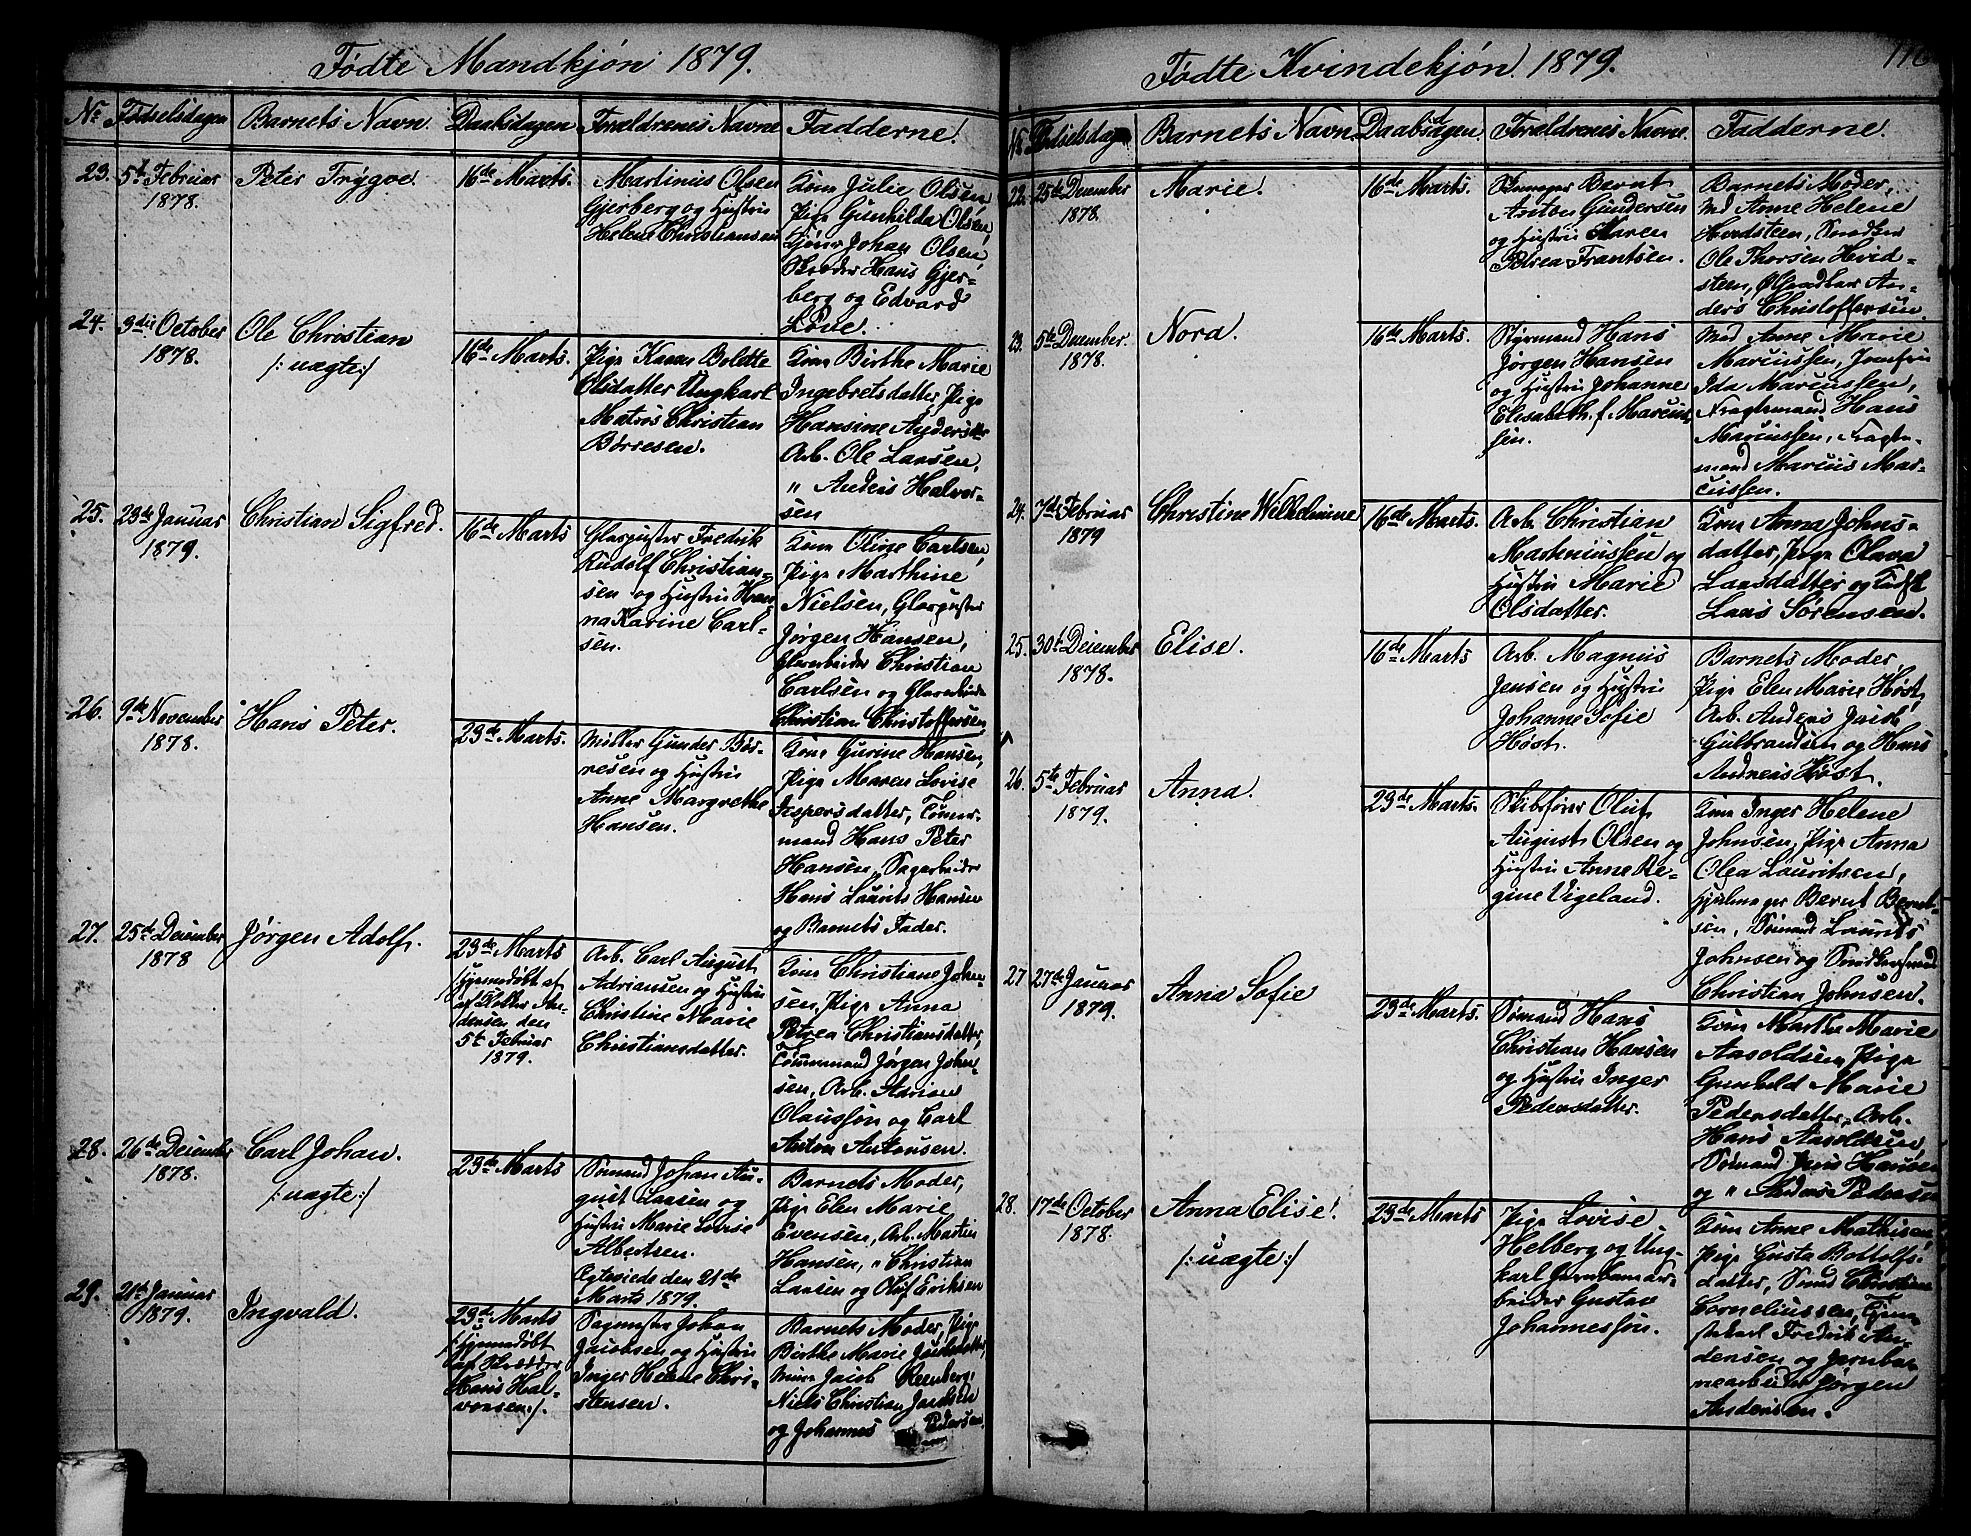 Fødte Mandkjøn 1879.
No Fødselsdagen Barnets Navn. Daabsdagen Forældrenes Navne Fadderne.
23. 5te Februar 1878. Peter Trygve. 16de Marts.
Martinius Olsen
Gjerberg og Hustru
Helene Christiansen
Kone Julie Olsen,
Pige Gunhilda Olsen,
Johan Olsen,
Skræder Hans Gjer-
berg og Edvard
Løve.
24. 3die October 1878. Ole Christian
/: uægte :/
16de Marts.
Pige Karen Bolette
Olsdatter Ungkarl
Matros Christian
Børresen.
Kone Birthe Marie
Ingebretsdatter, Pige
Hansine Andersdtr
Arb. Ole Larsen,
" Anders Halvor-
sen
25. 23de Januar 1879. Christian Sigfred. 16de Marts
Glaspuster Fredrik
Rudolf Christian-
sen og Hustru Han-
na Karine Carl-
sen.
Kone Oline Carlsen,
Pige Marthine
Nielsen, Glaspuster
Jørgen Hansen,
Glasarbeider Christian
Carlsen og Glasarbeider
Christian Christoffersen.
26. 9de November 1878. Hans Peter. 23de Marts.
Møller Gunder Bør-
resen og Hustru
Anne Margrethe
Hansen.
Kone Gurine Hansen,
Pige Maren Lovise
Jespersdatter, Tømmer-
mand Hans Peter
Hansen, Sagarbeider
Hans Laurits Hansen
og Barnets Fader.
27. 25de December 1878 Jørgen Adolf. 23de Marts
/:hjemmedøbt af
af Holter An-
dersen den
5te Februar
1879.
Arb. Carl August
Adriansen og Hustru
Christine Marie
Christiansdatter.
Kone Christiane Johan-
sen, Pige Anna
Petrea Christiansdatter,
Tømmermand Jørgen Johan-
sen, Arb. Adrian
Olaussøn og Carl
Anton Antonsen.
28. 26de December 1878. Carl Johan.
/: uægte :/
23de Marts
Sømand Johan Au-
gust Larsen og
Hustru Marie Lovise
Albertsen.
Ægteviede den 21de
Marts 1879.
Barnets Moder,
Pige Elen Marie
Evensen, Arb. Martin
Hansen, " Christian
Larsen og Oluf Eriksen
29. 21de Januar 1879. Ingvald. 23de Marts
/:hjemmedøbt
af Skrædder
Hans Hal-
vorsen:/.
Sagmester Johan
Jacobsen og Hustru
Inger Helene Chri-
stensen.
Barnets Moder, Pige
Birthe Marie
Jacob Reenberg,
Niels Christian Jacobsen
og Johannes Pedersen.
Fødte Kvindekjøn. 1879.
No Fødselsdagen Barnets Navn. Daabsdagen. Forældrenes Navne. Fadderne.
22. 25de December 1878. Marie. 16de Marts.
Bernt
Anton Gundersen
og Hustru Maren
Petrea Frantsen.
Barnets Moder,
Md Anne Helene
Hvidsteen, Snedker
Ole Thorsen Hvid-
steen, An-
ders Christoffersen.
23. 5te December 1878. Nora. 16de Marts.
Styrmand Hans
Jørgen Hansen
og Hustru Johanne
Elisabeth f. Marcus-
sen.
Md Anne Marie
Marcussen, Jomfru
Ida Marcussen,
Fragtemand Hans
Marcussen, Fragte-
mand Marcus Mar-
cussen.
24. 7de Februar 1879 Christine Wilhelmine 16de Marts.
Arb. Christian
Martiniussen og
Hustru Marie
Olsdatter.
Kone Anna Johns-
datter, Pige Olava
Larsdatter og
Lars Sørensen.
25. 30te December 1878. Elise. 16de Marts
Arb. Magnus
Jensen og Hustru
Johanne Sofie
Høst.
Barnets Moder,
Pige Elen Marie Høst,
Arb. Anders Jacob
Gulbrandsen og Hans
Andreas Høst.
26. 5te Februar 1879. Anna. 23de Marts.
Skibsfører Oluf
August Olsen og
Hustru Anne Re-
gine Vigeland.
Kone Inger Helene
Johnsen, Pige Anna
Olea Lauritsen,
Bernt Bernt-
sen, Sømand Laurits
Johnsen og
Christian Johnsen.
27 27de Januar 1879. Anna Sofie 23de Marts.
Sømand Hans
Christian Hansen
og Hustru Inger
Pedersdatter.
Kone Marthe Marie
Arvoldsen, Pige
Gunhild Marie
Pedersdatter, Arb.
Hans Arvoldsen,
Sømand Jens Hansen
og " Anders Pedersen
28. 17de October 1878. Anna Elise.
/: uægte :/
23de Marts
Pige Lovise
Helberg og Ung-
karl Jernbanear-
beider Gustav
Johannessøn.
Kone Anne Mathisen,
Pige Gusta Bottolfs-
datter, Smed Christian
Corneliussen, Tjene-
stekarl Fredrik An-
dersen og Jernba-
nearbeider Jørgen
Andersen.